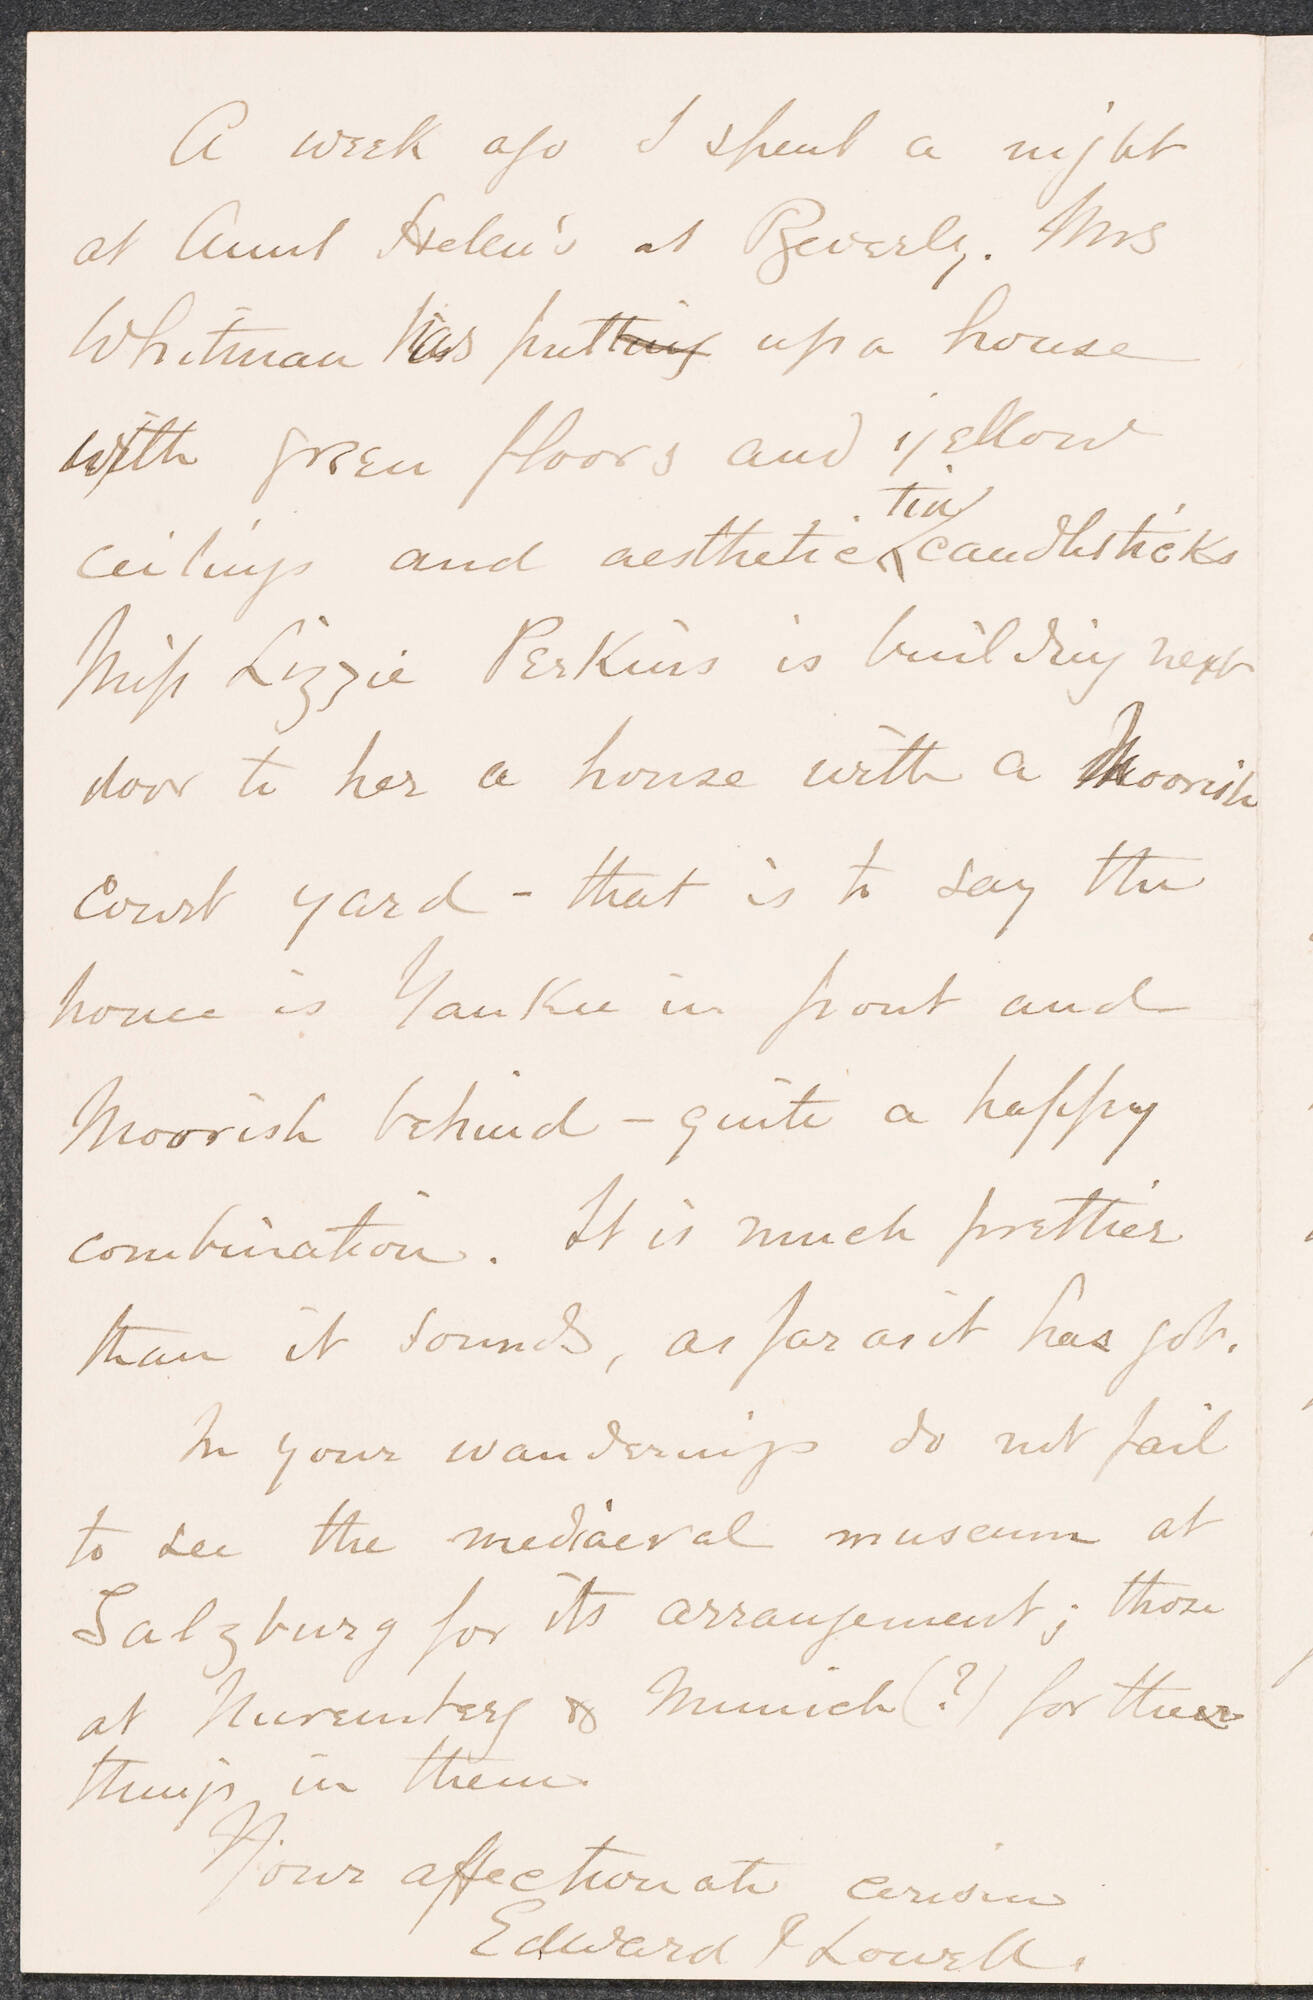 A week ago I spent a night
at Aunt Helen's at Beverly. Mrs
Whitman has putting up a house
with green floors and yellow
ceilings and aesthetic tin candlesticks
Miss Lizzie Perkins is building next
door to her a house with a Moorish
court yard - that is to say the
house is Yankee in front and
Moorish behind - quite a happy
combination. It is much prettier
than it sounds, as far as it has got.
In your wanderings do not fail
to see the mediaeval museum at
Salzburg for its arrangement; those
at Nuremberg & Munich (?) for the
things in them.
Your affectionate cousin
Edward J Lowell.